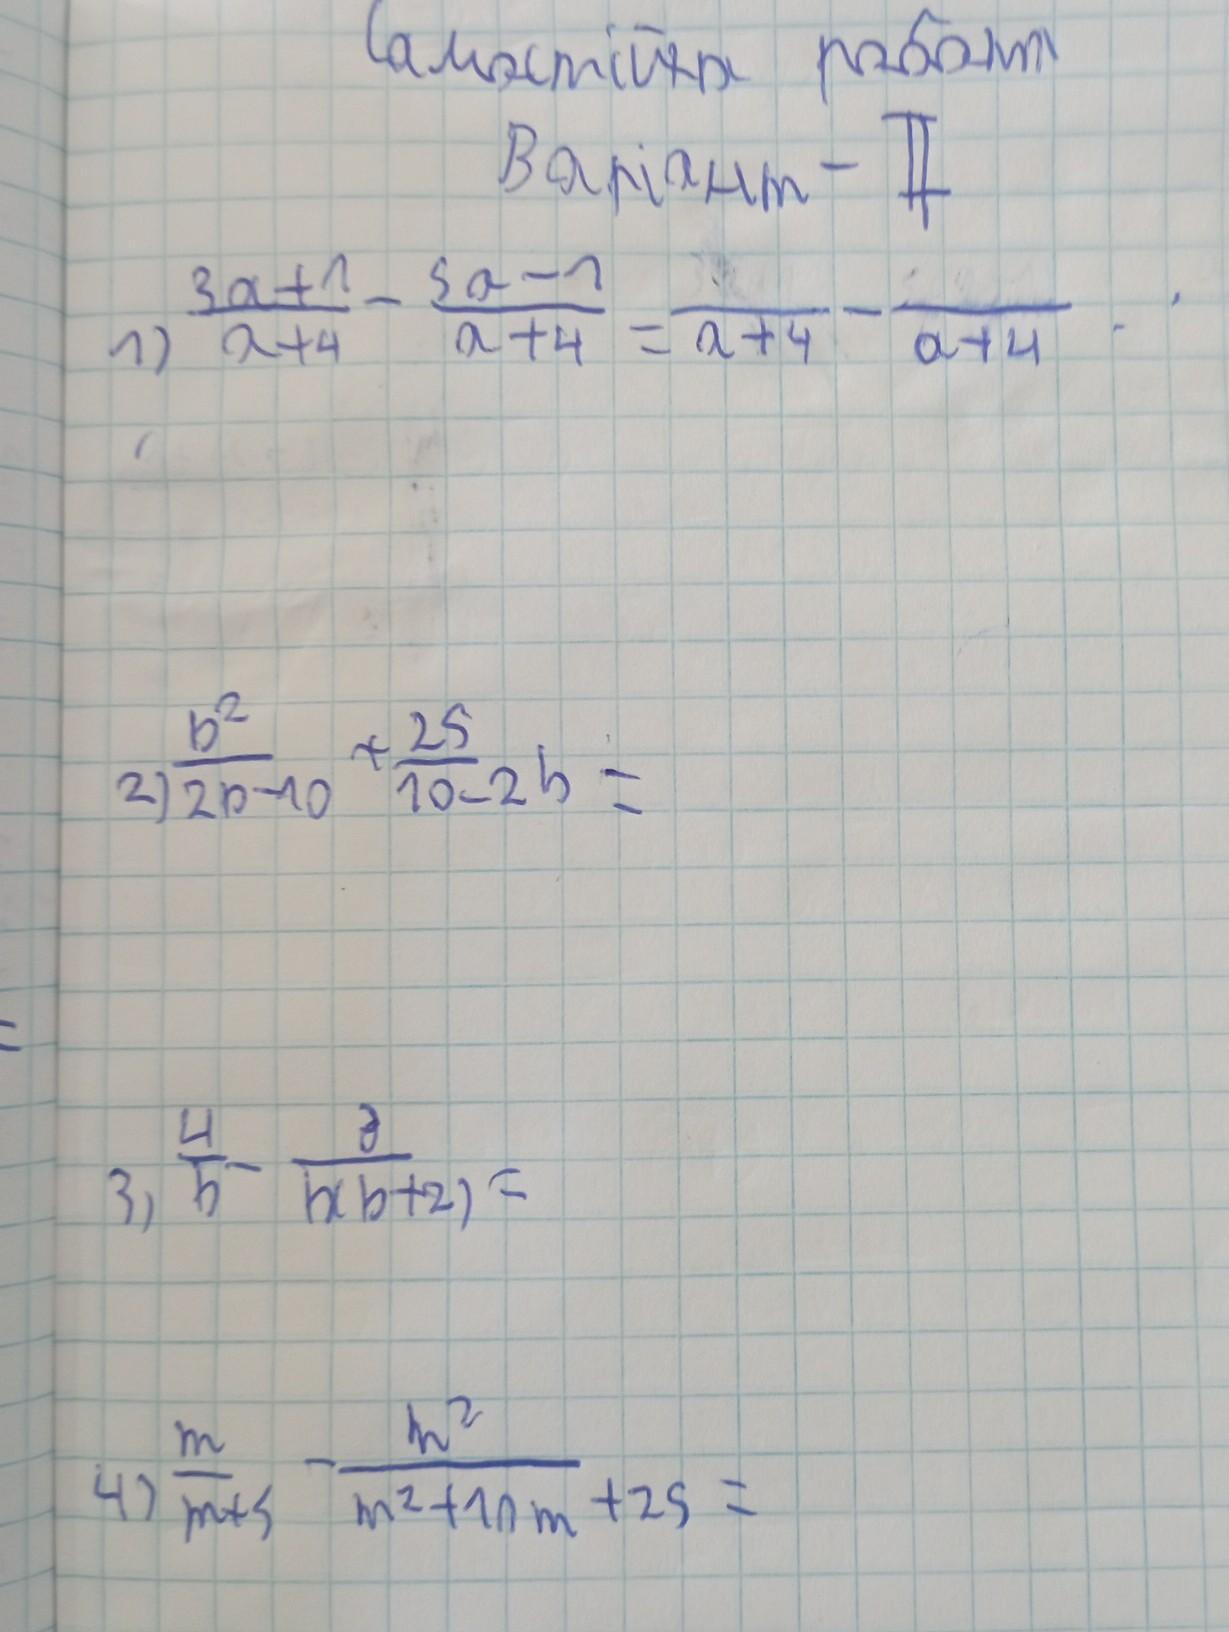 Самостійна работа
Варіант - II
1) (3a+1)/(a+4) - (5a-1)/(a+4) = /(a+4) - /(a+4)
2) b²/(2b-10) + 25/(10-2b) =
3) 4/b - 8/(b(b+2)) =
4) m/(m+5) - m²/(m²+10m+25) =